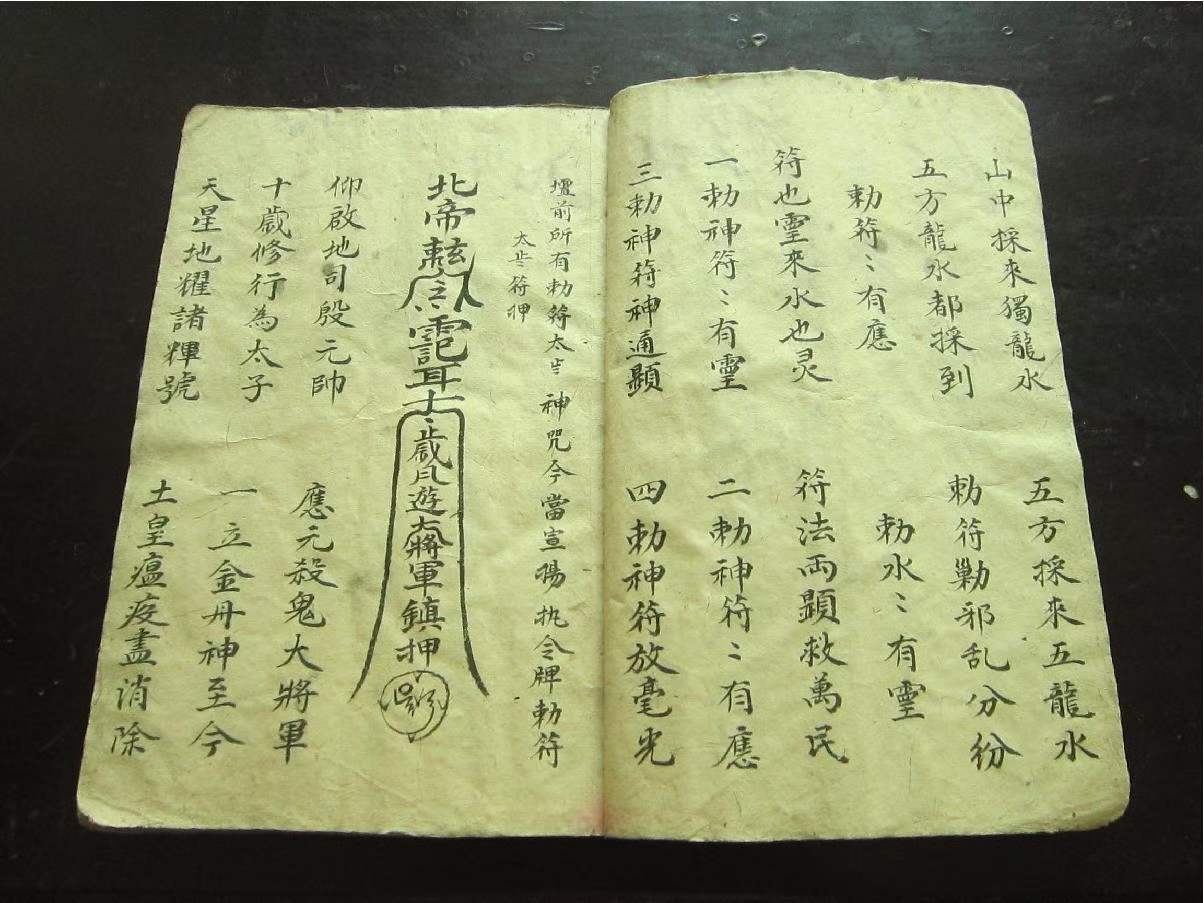 山中採來獨龍水 五方採來五龍水
五方龍水都採到 勅符勦邪乱分纷
勅符〻有應 勅水〻有靈
符也靈來水也灵 符法両顯救萬民
一勅神符〻有靈 二勅神符〻有應
三勅神符神通顯 四勅神符放毫光
壇前所有勅符太岁 神咒今當宣揚执令牌勅符
太岁符押
北帝 令 歲 遊 大將軍鎮押
仰啟地司殷元帥 應元殺鬼大將軍
十歲修行為太子 一立金丹神至今
天星地耀諸輝號 土皇瘟疫盡消除